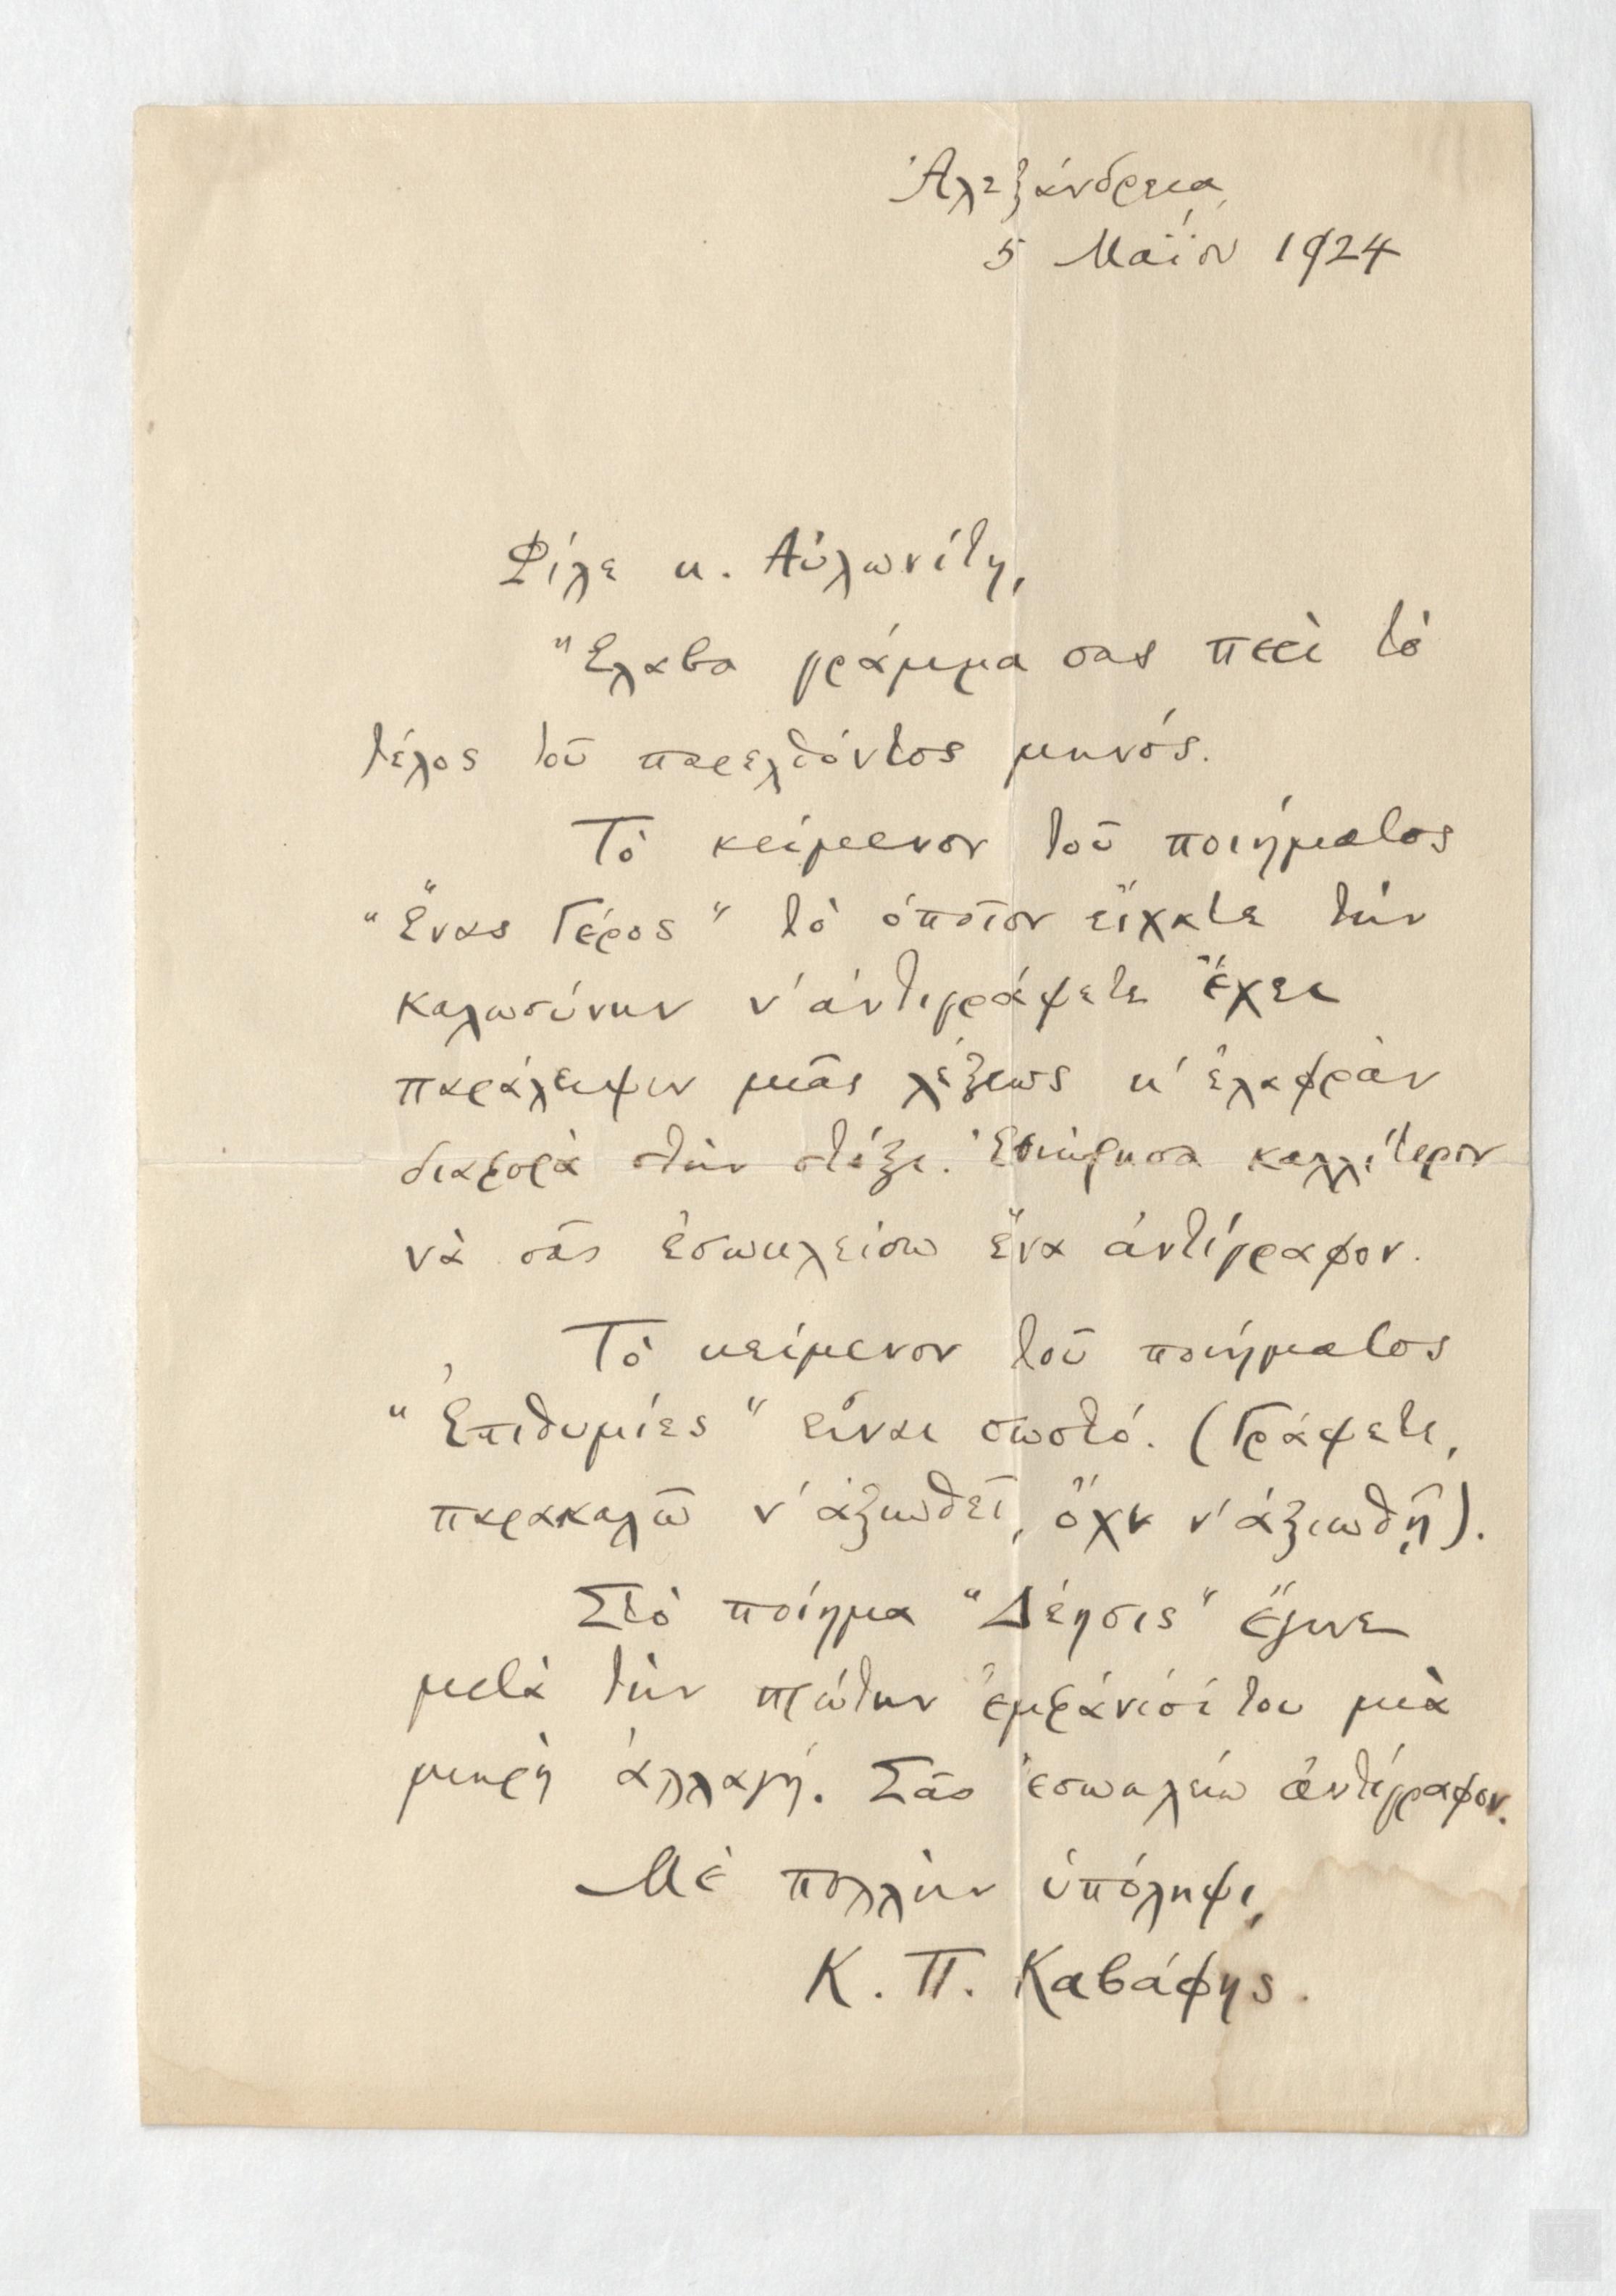 Ἀλεξάνδρεια,
5 Μαΐου 1924
Φίλε κ. Αὐλωνίτη,
Ἔλαβα γράμμα σας περὶ τὸ
τέλος τοῦ παρελθόντος μηνός.
Τὸ κείμενον τοῦ ποιήματος
“Ἕνας Γέρος” τὸ ὁποῖον εἴχατε τὴν
καλωσύνην ν’ ἀντιγράψετε ἔχει
παράλειψιν μιᾶς λέξεως κ’ ἐλαφρὰν
διαφορὰ στὴν στίξι. Ἐθεώρησα καλλίτερον
νὰ σᾶς ἐσωκλείσω ἕνα ἀντίγραφον.
Τὸ κείμενον τοῦ ποιήματος
“Ἐπιθυμίες” εἶναι σωστό. (Γράψετε,
παρακαλῶ ν’ ἀξιωθεῖ, ὄχι ν’ ἀξιωθῇ).
Στὸ ποίημα “Δέησις” ἔγινε
μετὰ τὴν πρώτην ἐμφάνισί του μιὰ
μικρὴ ἀλλαγή. Σᾶς ἐσωκλείω ἀντίγραφον.
Μὲ πολλὴν ὑπόληψι,
Κ. Π. Καβάφης.